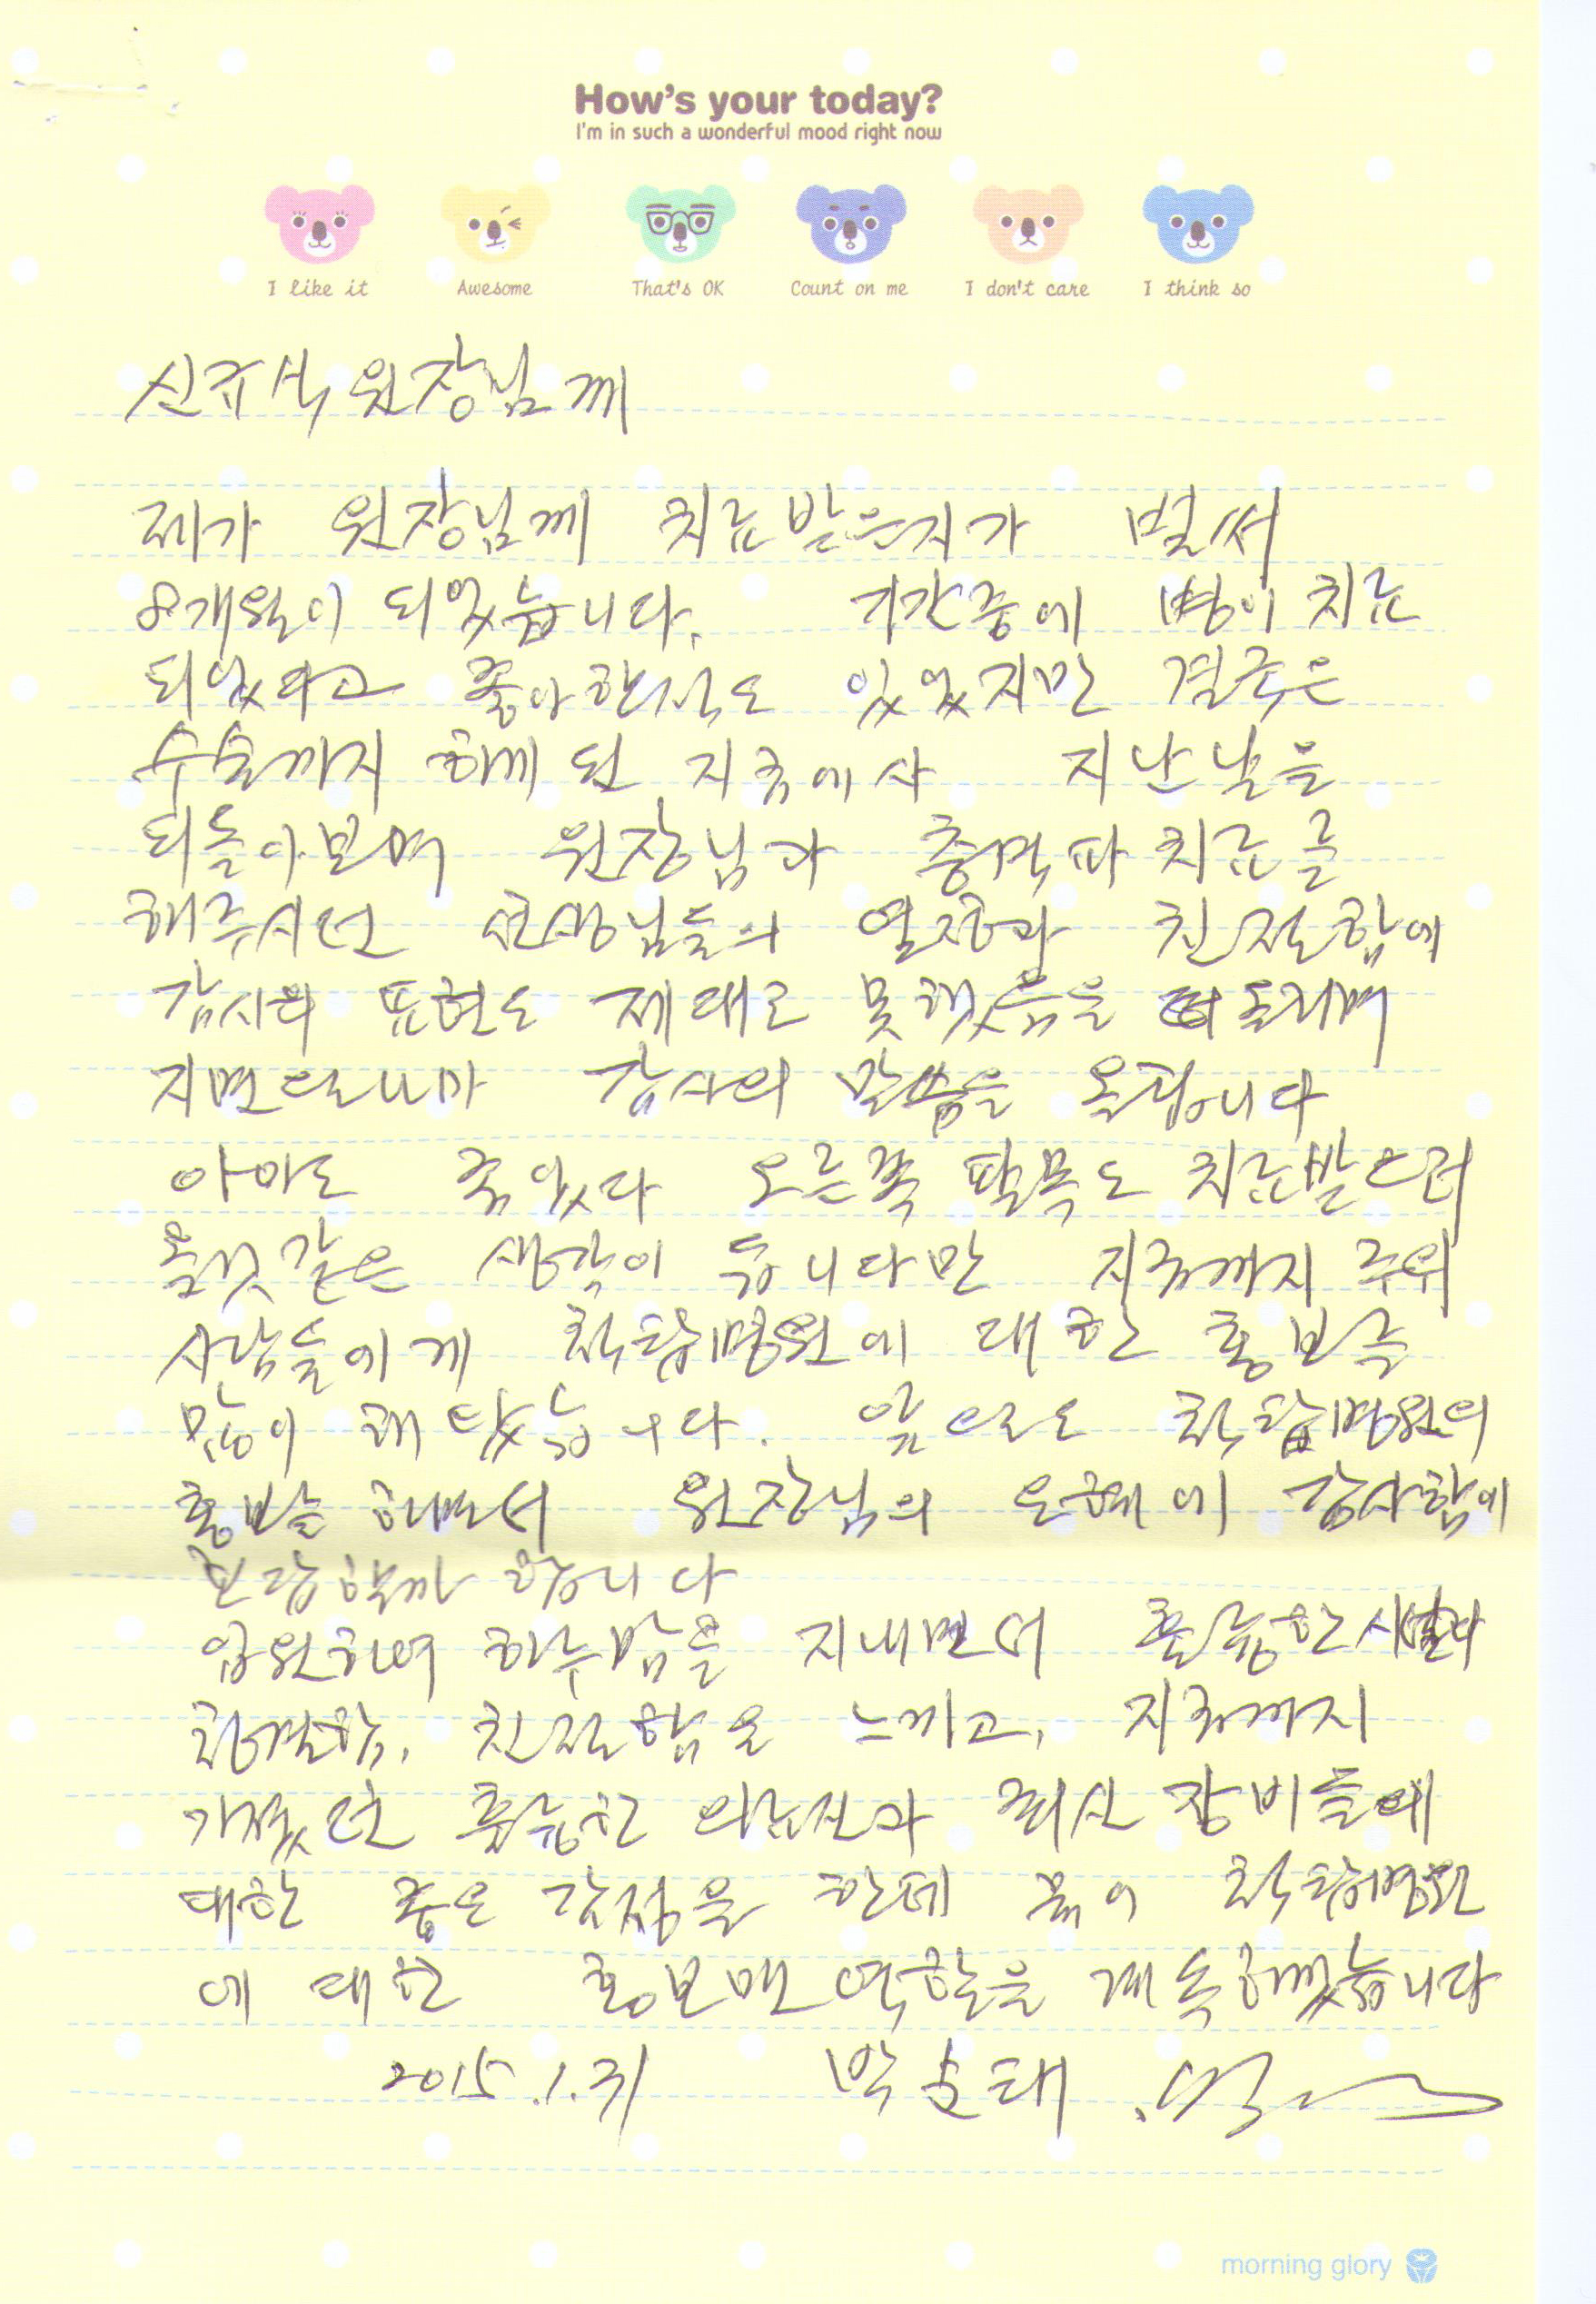 How's your today?
I'm in such a wonderful mood right now
I like it Awesome That's OK Count on me I don't care I think so
신규석 원장님께
제가 원장님께 치료받은지가 벌써
8개월이 되었습니다. 기간중에 병이 치료
되었다고 좋아한적도 있었지만 결국은
수술까지 하게 된 지금에사 지난날을
되돌아보며 원장님과 충격파 치료를
해주시던 선생님들의 열정과 친절함에
감사의 표현도 제대로 못했음을 돌리며
지면으로나마 감사의 말씀을 올립니다
아마도 좀 있다 오른쪽 팔목도 치료받으러
올것같은 생각이 듭니다만 지금까지 주위
사람들에게 병원에 대한 홍보를
많이 해 왔습니다. 앞으로도 병원의
홍보를 하면서 원장님의 은혜에 감사함에
보답할까 합니다
입원하여 하루밤을 지내면서 훌륭한 시설과
청결함, 친절함을 느끼고, 지금까지
가졌던 훌륭한 의료진과 최신 장비들에
대한 좋은 감정을 한데 묶어 병원
에 대한 홍보맨 역할을 계속하겠습니다
2015.1.31 박 태
morning glory